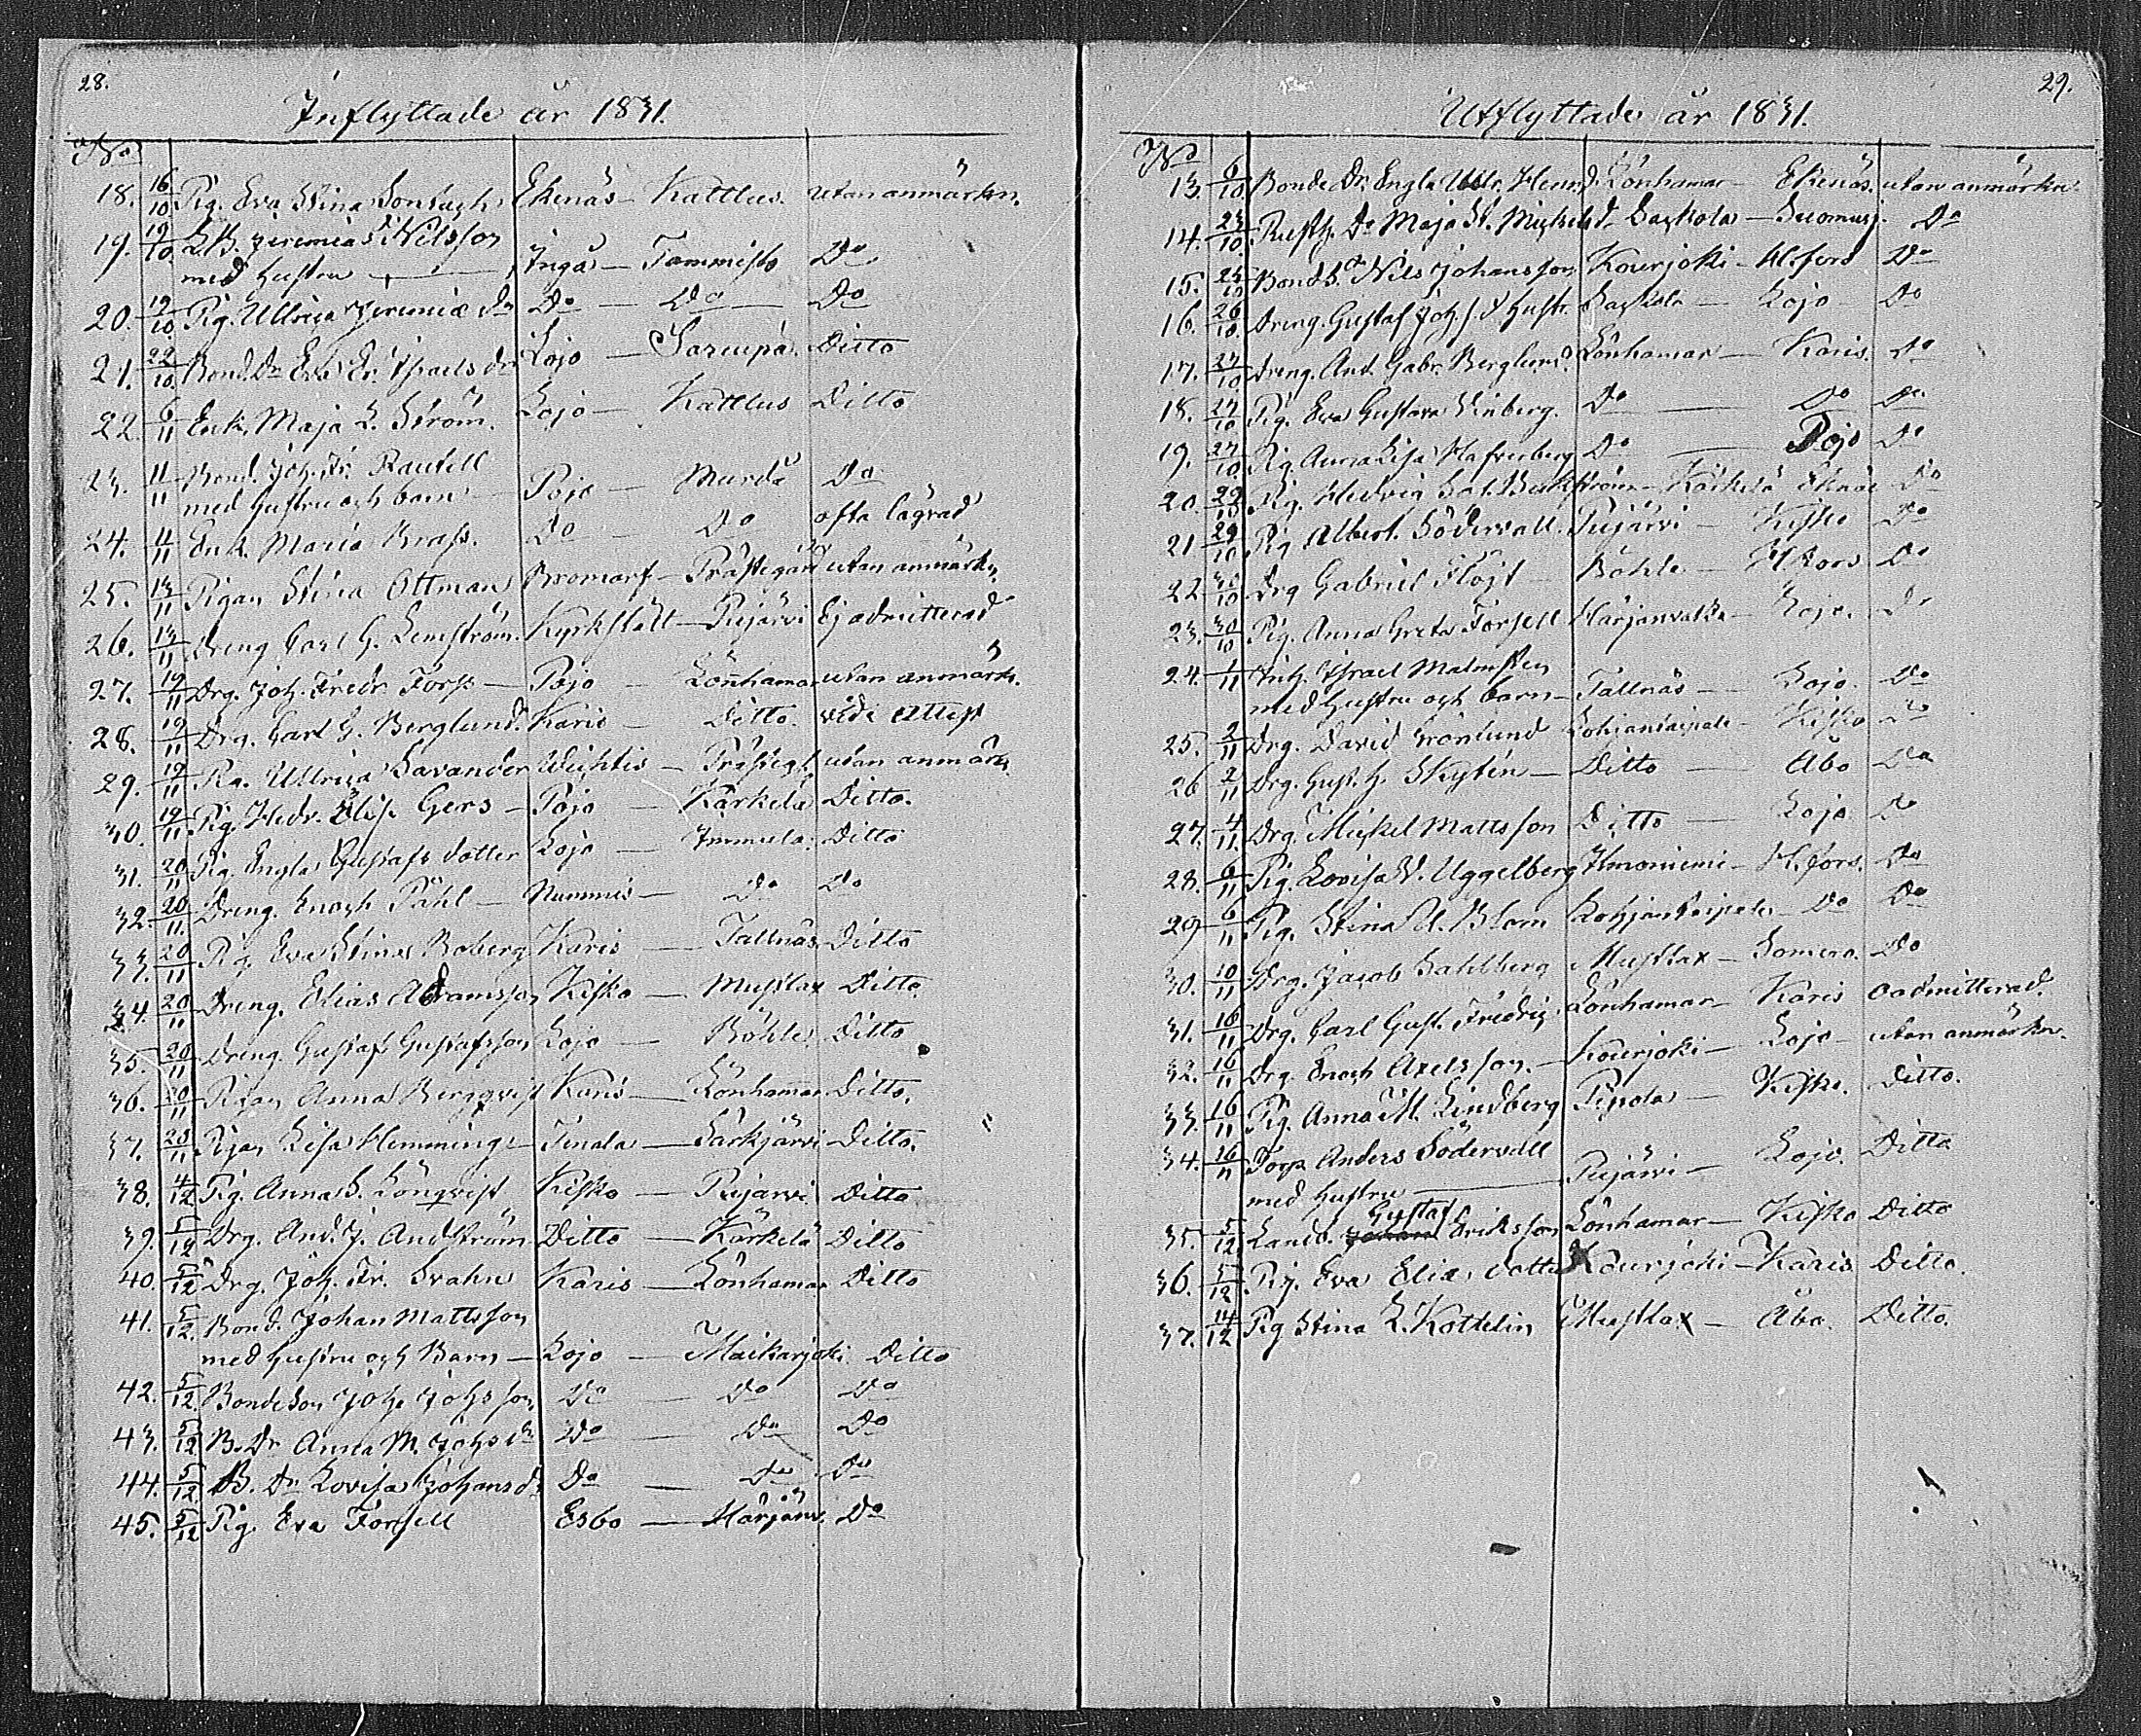 28.
Inflyttade år 1831.
No
18. 16/10 Pig. Eva Stina Ekenäs - Kattlus. utan anmärkn.
19. 19/10 Jeremias Nilsson
med hustru — Ingå - Tammisto Do
20. 19/10 Pig. Ulrica Jeremiæ dr Do — Do — Do
21. 22/10 Bond. Dr Eva Er. Israels dr Lojo - Ditto
22. 6/11 Enk. Maja L. Ström. Lojo - Kattlus Ditto
23. 11/11 Bond. Joh. Fr. Rautell
med hustru och barn - Pojo - Do
24. 4/11 Enk. Maria Brass. Do - Do ofta lagrad
25. 13/11 Pigan Stina Ottman Bromarf - Prästegård utan anmärkn.
26. 13/11 Dreng Carl G. Lemström. Kyrkslätt - Pujärvi Ej admitterad
27. 19/11 Drg. Joh. Fredr. Forss - Pojo - Lönhamar utan anmärk.
28. 19/11 Drg. Carl G. Berglund. Karis - Ditto. vide attest
29. 19/11 Ulrica Savander Wichtis - Prästeg. utan anmärk.
30. 19/11 Pig. Hedv. Elis. Gers - Pojo - Kärkelä Ditto.
31. 20/11 Pig. Engla Gustafs dotter Lojo - Immula. Ditto
32. 20/11 Dreng. Enoch Påhl - Nummis - Do Do
33. 20/11 Pig. Eva Stina Boberg Karis - Tallnäs Ditto
34. 20/11 Dreng. Elias Adramsson Kisko - Mustlax Ditto
35. 20/11 Dreng. Gustaf Gustafsson Lojo - Böhle Ditto
36. 20/11 Pigan Anna Bergqvist Karis - Lönhamar Ditto.
37. 28/11 Pigan Lisa Hemming - Tenala - Särkjärvi Ditto.
38. 4/12 Pig. Anna S. Lönqvist Kisko - Pujärvi Ditto
39. 5/12 Drg. And. J. Andström Ditto - Kärkelä Ditto
40. 5/12 Drg. Joh. Fr. Svahn Karis - Lönhamar Ditto
41. 5/12. Bond. Johan Mattsson
med hustru och Barn - Lojo - Maikarjoki Ditto
42. 5/12. Bondeson Joh. Johsson Do - Do Do
43. 5/12 B. Dr Anna M. Johs dr Do - Do Do
44. 5/12. B. Dr Lovisa Johans dr Do - Do Do
45. 5/12 Pig. Eva Forsell Esbo - Härjänv. Do
29.
Utflyttade år 1831.
No
13. 6/10 Bonde Dr. Engla Ulr. Henr. d. Lönhamar - Ekenäs. utan anmärkn.
14. 23/10. Rusth. Dr Maja St. Mickels d. - Suomusj. Do
15. 25/10 Bonds. Nils Johansson Kourjoki - H.fors Do
16. 26/10. Dreng. Gustaf Joh. s. & hustr. - Lojo - Do
17. 27/10 Dreng. And. Gabr. Berglund. Lönhamar - Karis. Do
18. 27/10 Pig. Eva Gustava Vinberg. Do — Do Do
19. 27/10. Pig. Anna Lisa Do — Pojo Do
20. 29/10 Pig. Hedvig - Kärkelä Eknäs Do
21 29/10 Pig Albert. Södervall. Pujärvi - Kisko Do
22 30/10 Drg Gabriel Flöjt - Böhle - H.fors Do
23. 30/10 Pig. Anna Greta Forsell Härjänvatka - Lojo. Do
24. 1/11 Israel Malmsten
med hustru och barn - Tallnäs - Lojo. Do
25. 2/11 Drg. David Grönlund Lohjantaipale - Kisko Do
26 2/11 Drg. Gust. H. Skytén - Ditto - Åbo Do
27. 4/11. Drg. Mickel Mattsson Ditto - Lojo Do
28. 6/11 Pig. Lovisa W. Uggelberg Ilmoniemi - H.fors. Do
29 6/11 Pig. Stina U. Blom Lohjantaipale - Do Do
30. 10/11 Drg. Jacob Sahlberg Mustlax - Somero. Do
31. 16/11 Drg. Carl Gust. Fredrig. Lönhamar - Karis oadmitterad.
32. 16/11 Drg. Enoch Axelsson. - Kourjoki - Lojo - utan anmärkn.
33 16/11 Pig. Anna M. Lindberg Pipola - Kisko. Ditto.
34. 16/11 Torp. Anders Södervall
med hustru — Pujärvi - Lojo. Ditto
35. 5/12. Gustaf Eriksson Lönhamar - Kisko Ditto
36. 5/12. Pig. Eva Eliæ dotter Kourjoki - Karis Ditto.
37. 14/12 Pig Stina L. Kottelin Mustlax - Åbo. Ditto.